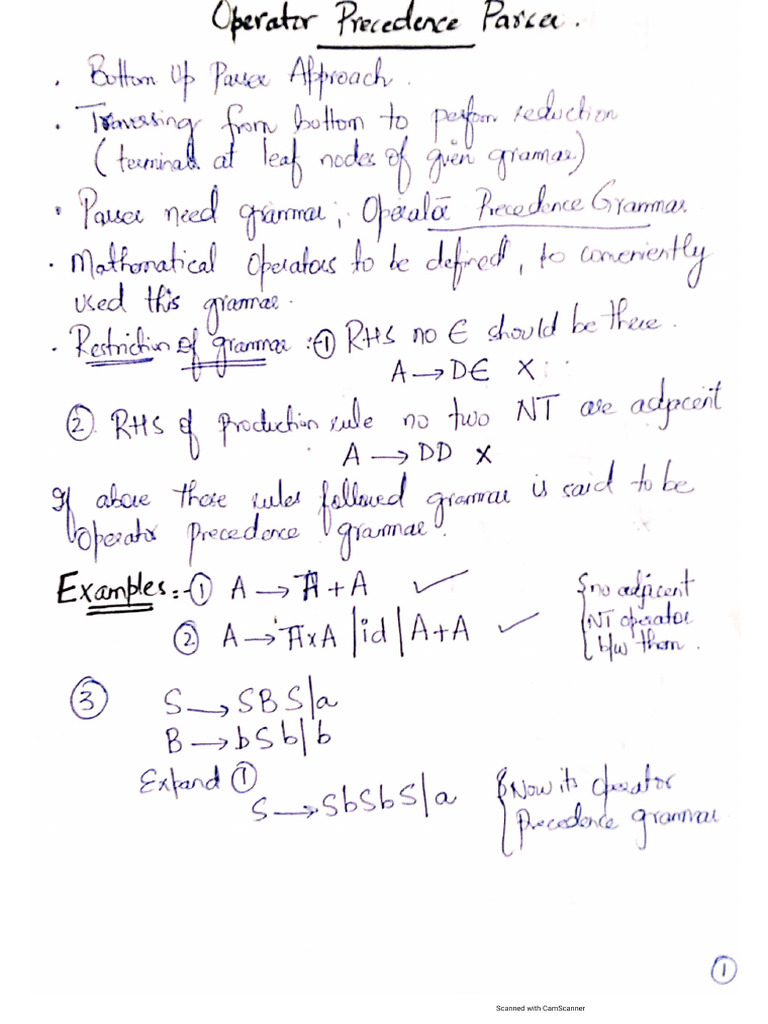 Operator Precedence Parser.
. Bottom Up Parser Approach.
. Traversing from bottom to perfom reduction
(terminals at leaf nodes of given grammar)
. Parser need grammar, Operator Precedence Grammar.
. Mathematical Operators to be defined, to conveniently
used this grammar.
. Restriction of grammar :- ① RHS no ∈ should be there.
A → D∈ X
② RHS of Production rule no two NT are adjacent
A → DD X
If above these rules followed grammar is said to be
Operator precedence grammar.
Examples :- ① A → A + A ✓ {no adjacent
② A → A x A | id | A + A ✓ NT operator
b/w them.
③ S → SBS | a
B → bSb | b
Expand ①
S → SbSbS | a {Now its operator
precedence grammar
①
Scanned with CamScanner